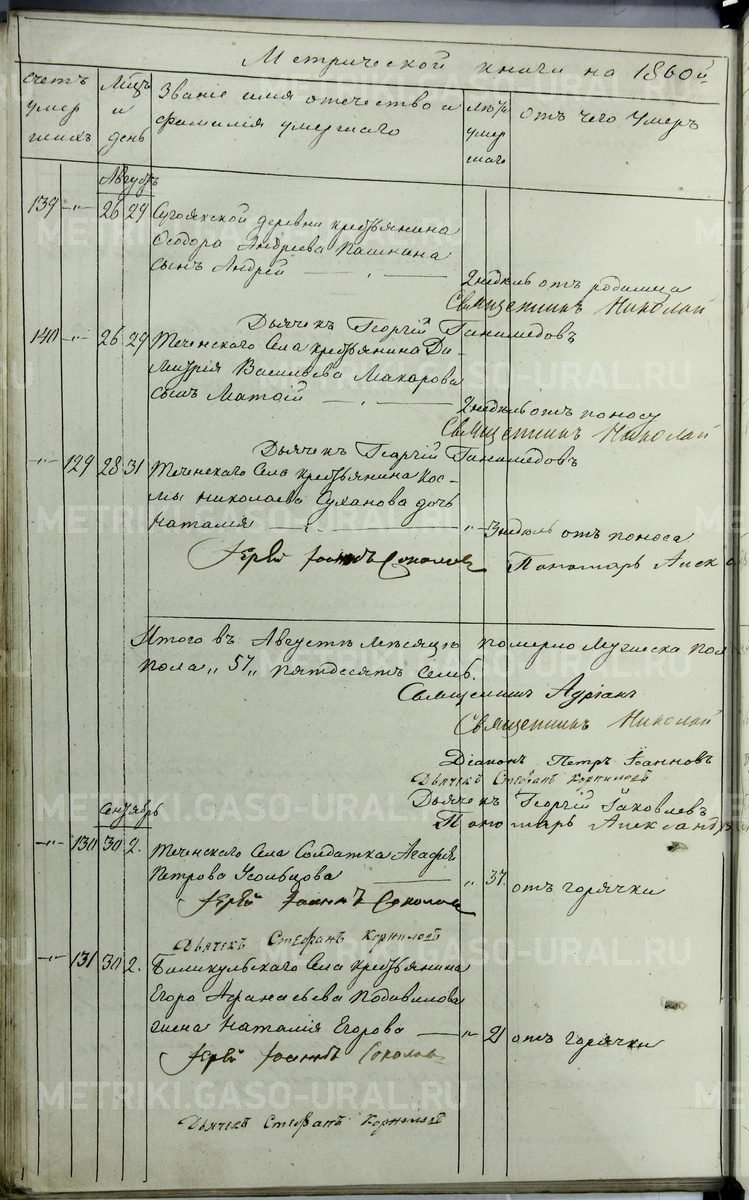 Метрической книги на 1860й
Счетъ умер шихъ
Мцъ и день
Званіе имя отечество и фамилія умершаго
умер шаго
отъ чего умеръ
Августъ
139 „ 26 29 Сугоякской деревни крестьянина
Ѳеодора Андреева Пашнина
сынъ Андрей — „ — 2 недѣль отъ родимца
Священникъ Николай
Дьячекъ Георгій Ганимедовъ
140 „ 26 29 Теченскаго Села крестьянина Ди-
митрія Васильева Макарова
сынъ Матѳій — „ — 2 недѣль отъ поносу
Священникъ Николай
Дьячекъ Георгій Ганимедовъ
„ 129 28 31 Теченскаго Села крестьянина Кос-
мы Николаева Суханова дочь
Наталія — „ — 3 недѣль отъ поноса
Іерей Іоаннъ Соколовъ Пономарь Алекс
Итого въ Августѣ мѣсяцѣ померло Мужеска пол
пола „ 57 „ пятдесятъ семь.
Священникъ Адріанъ
Священникъ Николай
Діаконъ Петръ Іоанновъ
Дьячекъ Стефанъ
Дьячекъ Георгій Яковлевъ
Пономарь Александръ
Сентябрь
„ 130 30 2. Теченскаго Села Солдатка Агафія
Петрова Усольцова — „ 37 отъ горячки
Іерей Іоаннъ Соколовъ
Дьячекъ Стефанъ
„ 131 30 2. Баликульскаго Села крестьянина
Егора Афанасьева
жена Наталія Егорова — „ 21 отъ горячки
Іерей Іоаннъ Соколовъ
Дьячекъ Стефанъ
METRIKI.GASO-URAL.RU